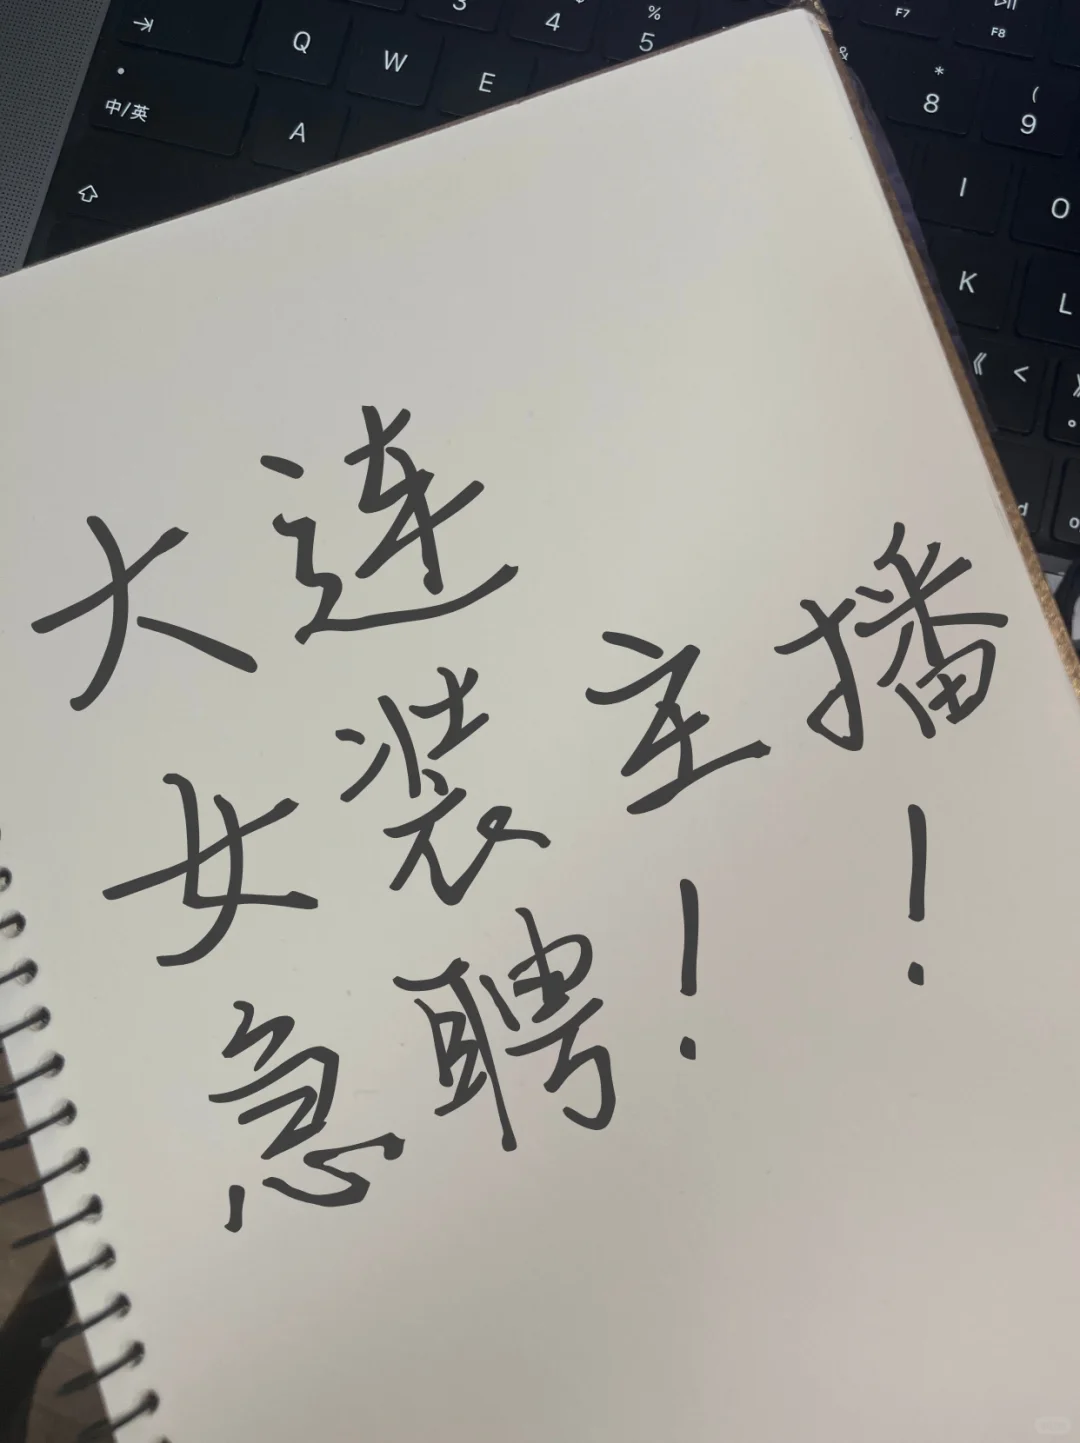 ⇥ Q W E 3 4 % 5 F7 F8
中/英 A & * 8 ( 9
I O
K L
《 <
大连
女装主播!
急聘!